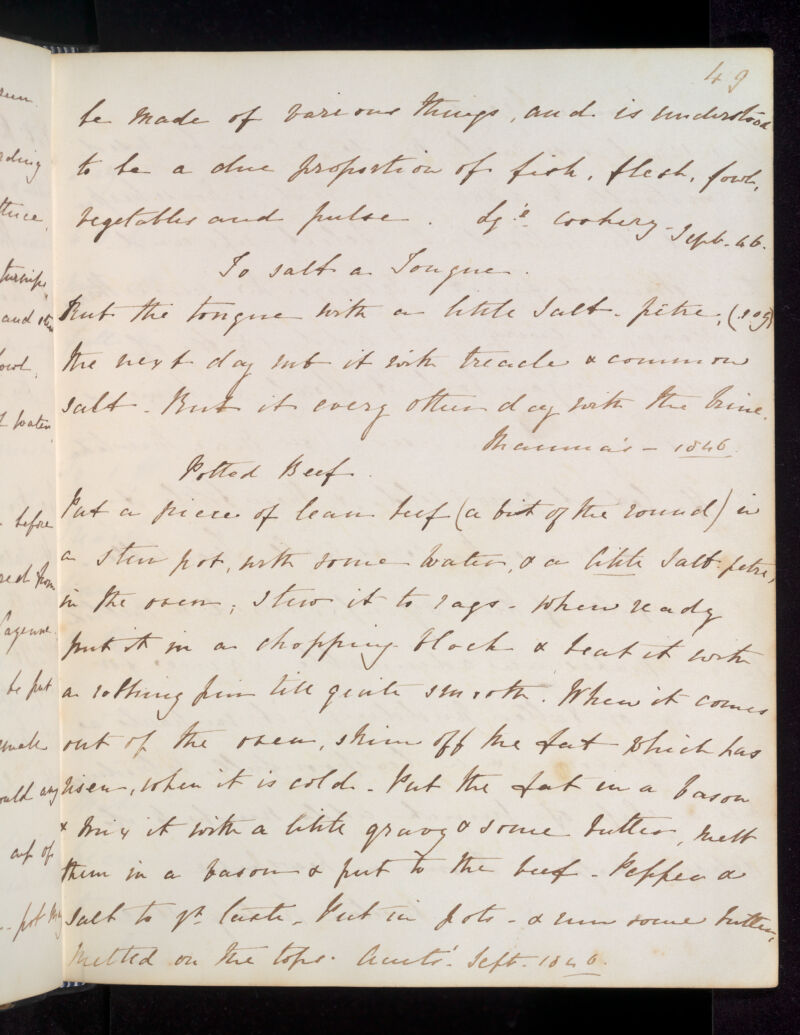 49
be made of various things, and is understood
to be a due proportion of fish, flesh, fowl,
vegetables and pulse. Cookery - Sept. 46.
To salt a Tongue.
Rub the tongue with a little Salt-petre,
the next day rub it with treacle & common
salt - Rub it every other day with the brine.
Mamma's - 1846.
Potted Beef.
Put a piece of lean beef (a bit of the round) in
a stew pot, with some water, & a little Salt-petre,
in the oven; stew it to rags - When ready
put it in a chopping block & beat it with
a rolling pin till quite smooth. When it comes
out of the oven, skim off the fat which has
risen, when it is cold - Put the fat in a bason
& mix it with a little gravy & some butter, melt
them in a bason & put to the beef - Pepper &
Salt to yr. taste - Put in pots - & run some butter,
melted on the tops. Aunts'. Sept. 1846.
turnips,
and
fowl,
f water
before
Cayenne
be put
pot